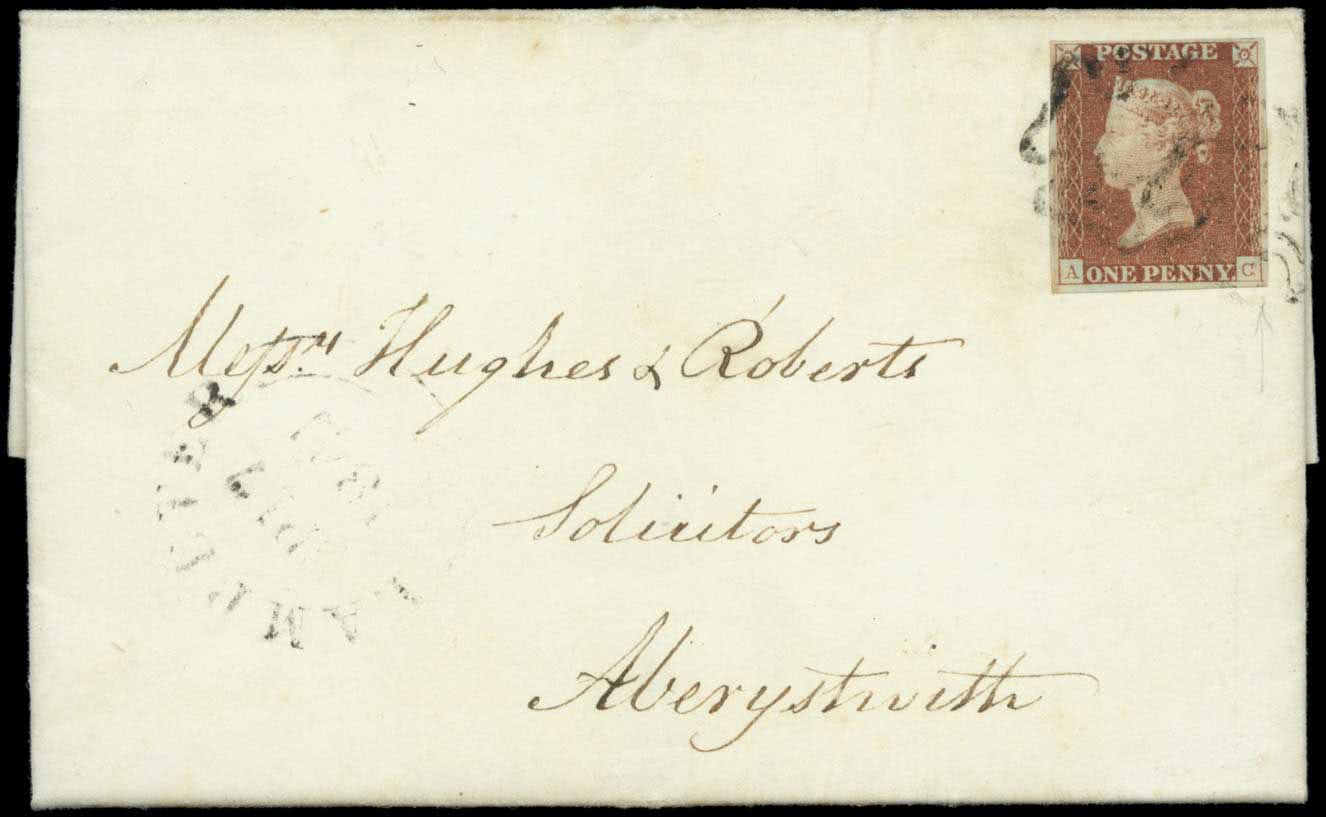 POSTAGE
A ONE PENNY. C
Messrs Hughes & Roberts
Solicitors
Aberystwith
LAMPETER